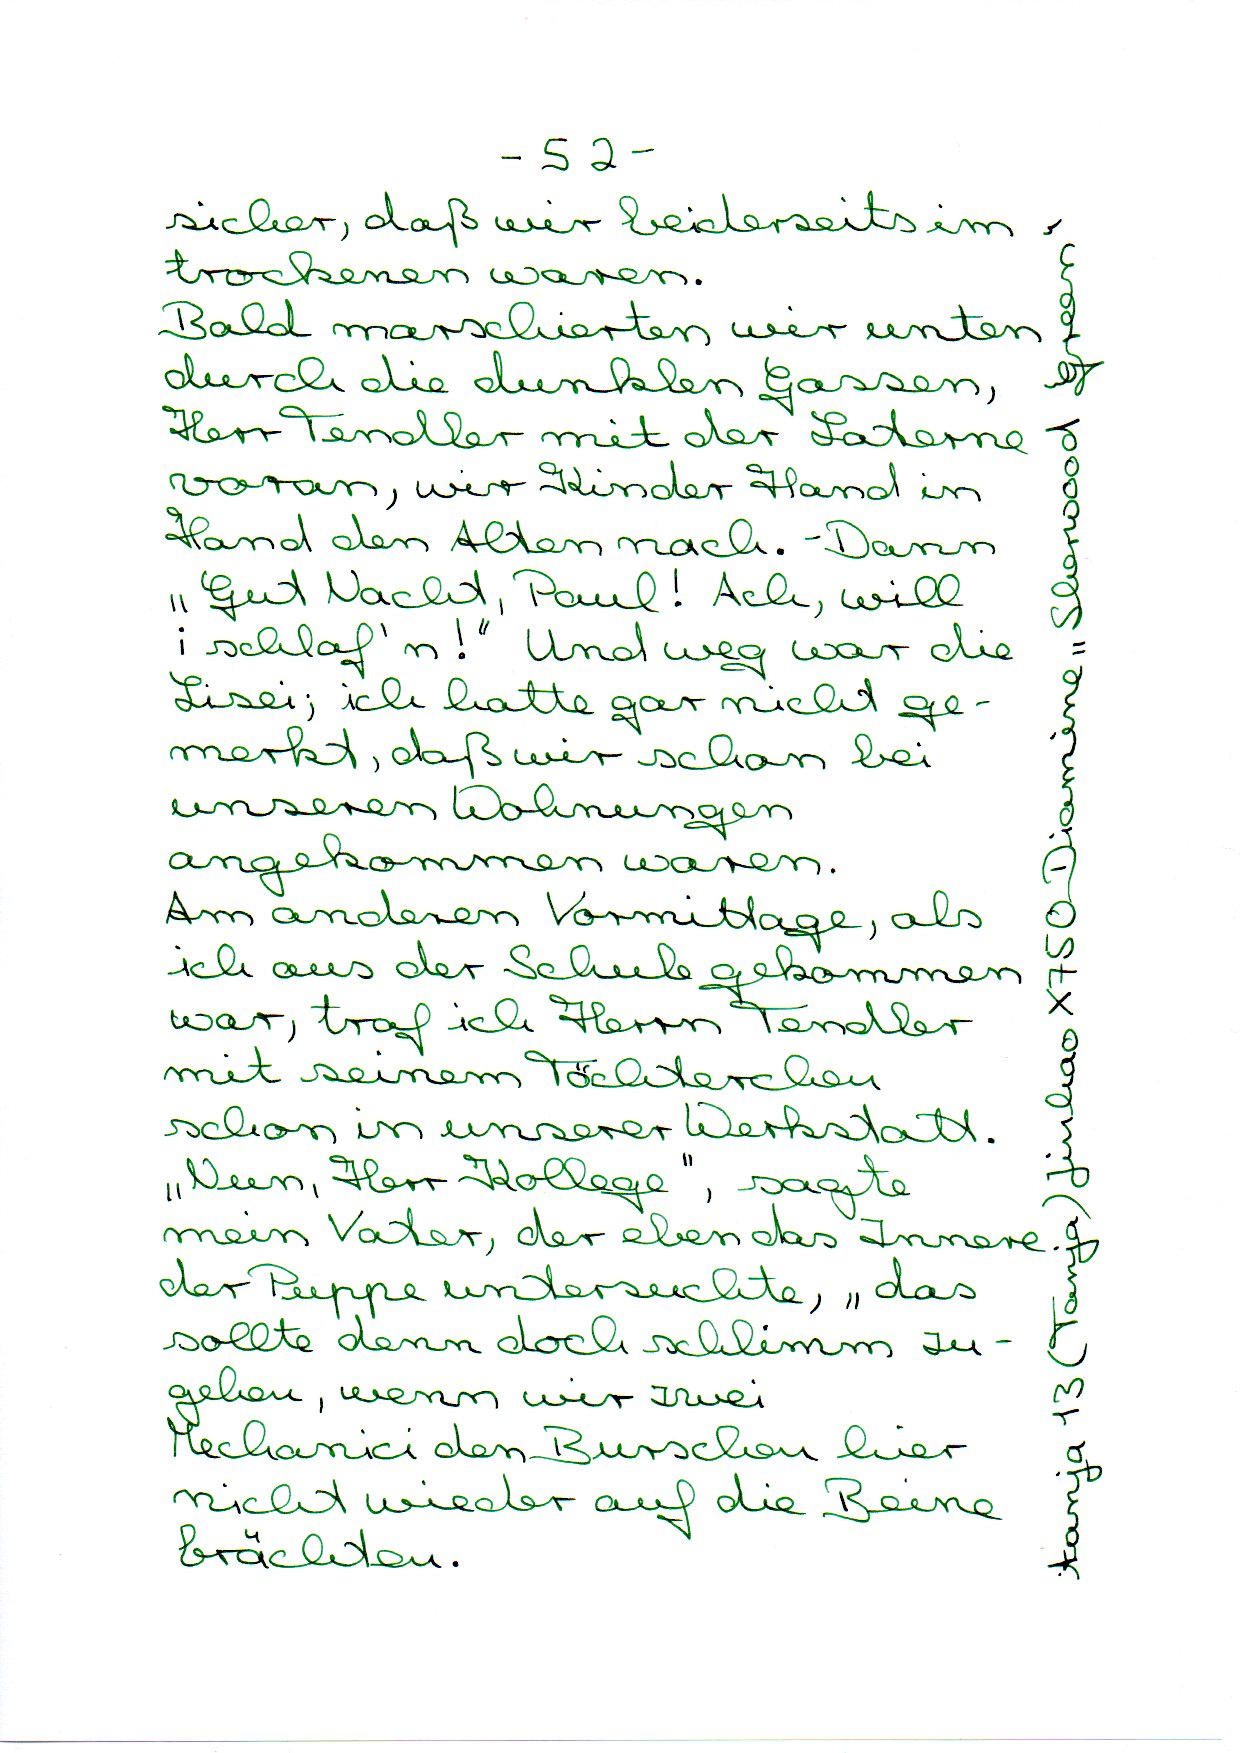 - 52 -
sicher, daß wir beiderseits im
trockenen waren.
Bald marschierten wir unten
durch die dunklen Gassen,
Herr Tendler mit der Laterne
voran, wir Kinder Hand in
Hand den Alten nach. - Dann
„Gut Nacht, Paul! Ach, will
i schlaf'n!" Und weg war die
Lisei; ich hatte gar nicht ge-
merkt, daß wir schon bei
unseren Wohnungen
angekommen waren.
Am anderen Vormittage, als
ich aus der Schule gekommen
war, traf ich Herrn Tendler
mit seinem Töchterchen
schon in unserer Werkstatt.
„Nun, Herr Kollege", sagte
mein Vater, der eben das Innere
der Puppe untersuchte, „das
sollte denn doch schlimm zu-
gehen, wenn wir zwei
Mechanici den Burschen hier
nicht wieder auf die Beine
brächten.
tanja 13 (Tanja) Jinhao X750 Diamine „Sherwood green"